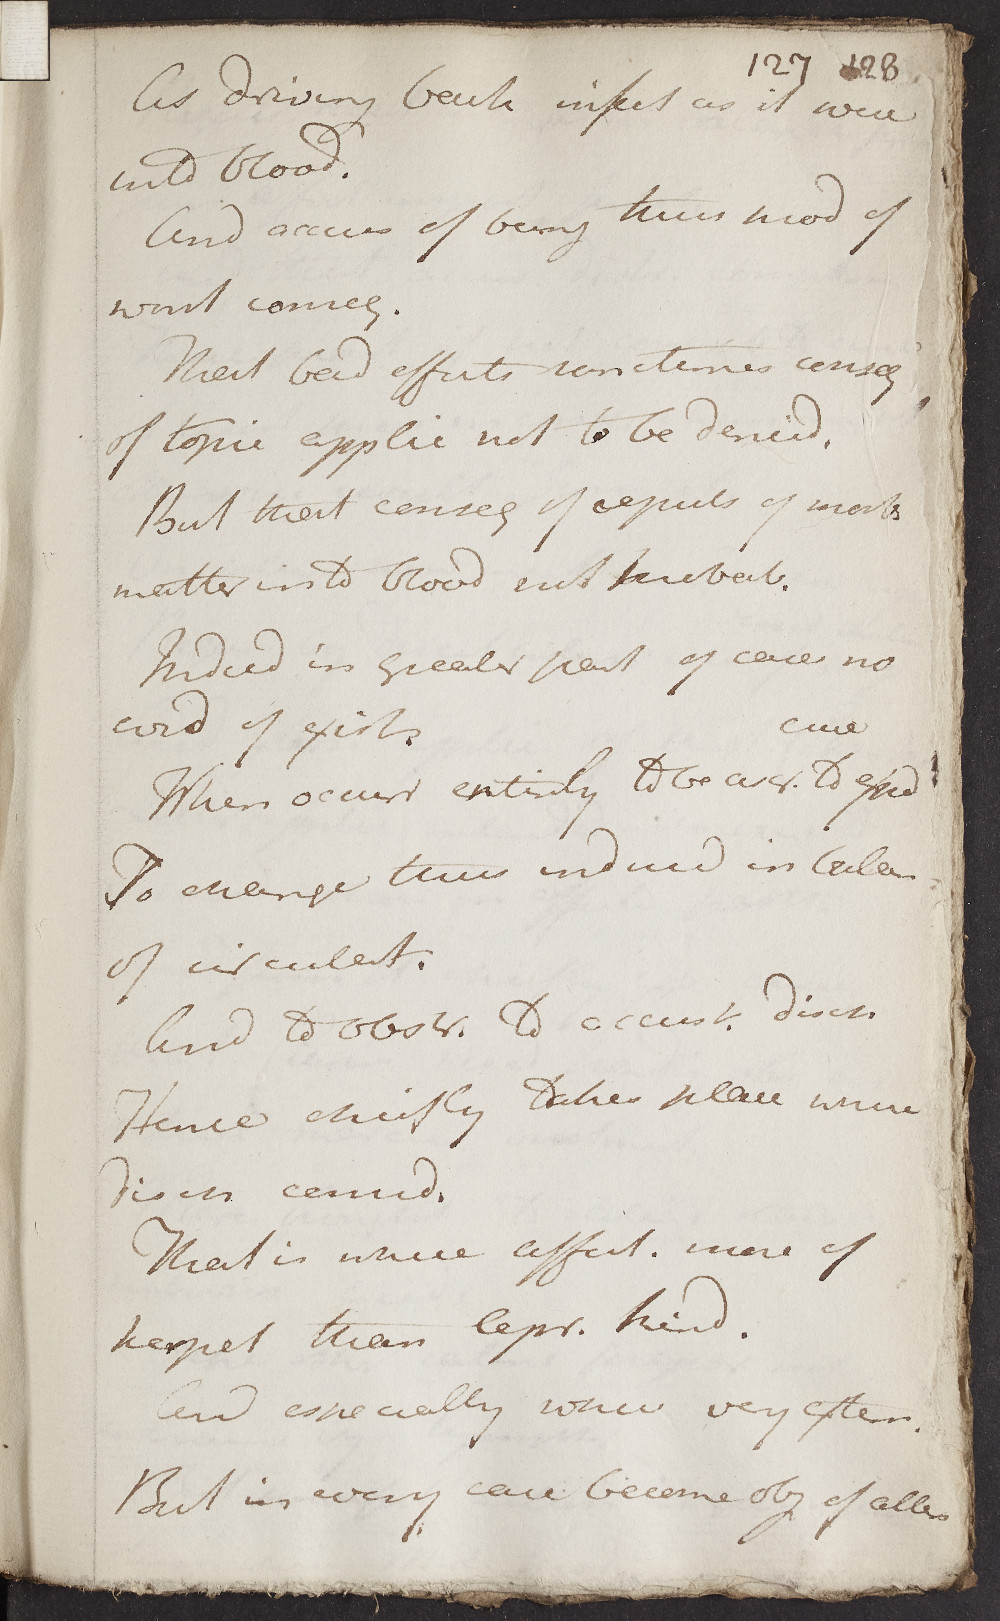 127 128
As driving back infect as it were
into blood.
And accus of being thus prod of
worst conseq.
That bad effects sometimes conseq
of topic applic not to be denied.
But that conseq of repuls of morb
matter into blood not probab.
Indeed in greater part of cases no
evid of exist.
case
When occurs entirely to be to
To change thus induced in balan
of circulat.
And to obstr. to accust. disch
Hence chiefly takes place where
disch consid.
That is where affect. more of
herpet than lepr. kind.
And especially where very exten.
But in every case become obj of atten